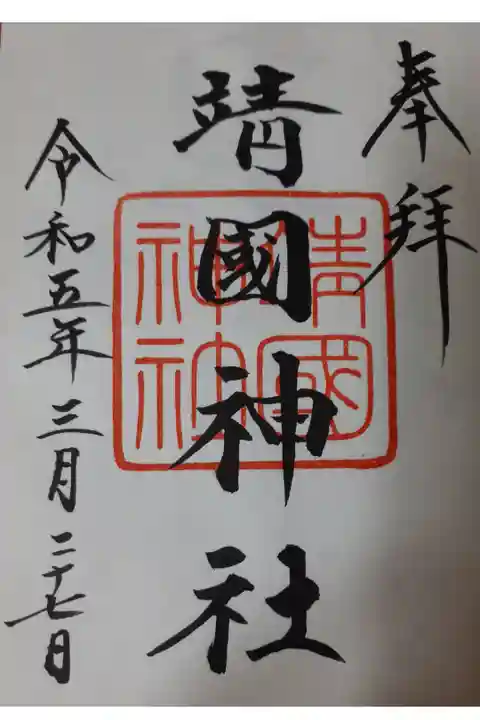 奉拝
靖國神社
靖國神社
令和五年三月二十七日